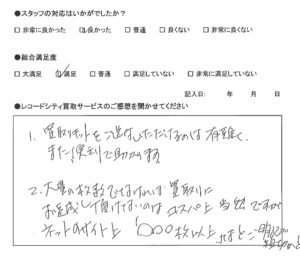 ●スタッフの対応はいかがでしたか?
□非常に良かった □良かった □普通 □良くない □非常に良くない
●総合満足度
□大満足 □満足 □普通 □満足していない □非常に満足していない
記入日: 年 月 日
●レコードシティ買取サービスのご感想を聞かせてください
1. 買取キットをご送付いただけるのは有難く、
また便利で助かります
2. 大量の枚数でなければ買取りに
お越し頂けないのはコスパ上当然ですが
ネットのサイト上 ○○○枚以上